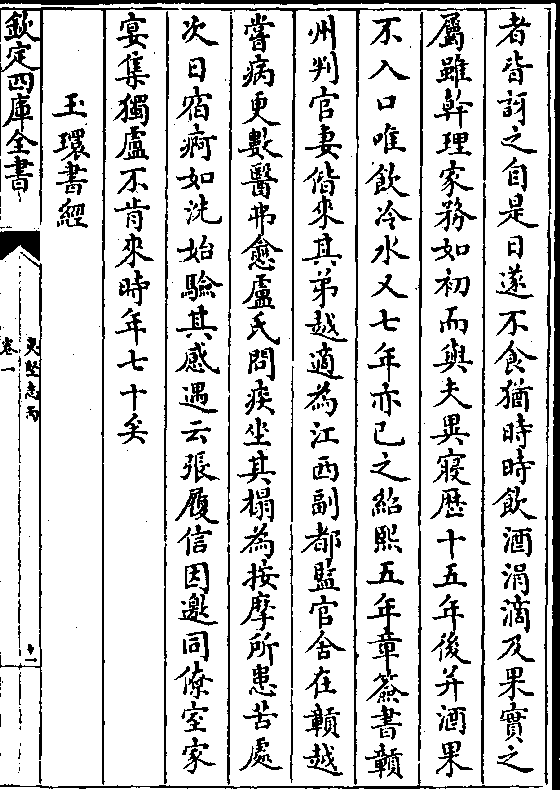 者皆訝之自是日遂不食猶時時飲酒涓滴及果實之
屬雖幹理家務如初而與夫異寢歴十五年後并酒果
不入口唯飲冷水又七年亦已之紹熙五年章簽書贑
州判官妻偕來其弟越適為江西副都監官舍在贑越
嘗病更數醫弗愈盧氏問疾坐其榻為按摩所患苦處
次日宿疴如洗始驗其感遇云張履信因邀同僚室家
宴集獨盧不肯來時年七十矣
玉環書經
欽定四庫全書
夷堅志丙
卷一
十一